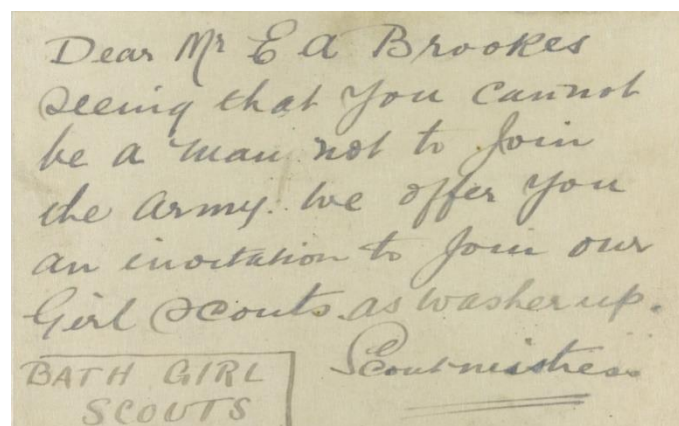 Dear Mr E A Brookes
Seeing that you cannot
be a man not to Join
the Army. We offer you
an invitation to Join our
Girl Scouts. as washer up.
Scoutmistress
BATH GIRL
SCOUTS